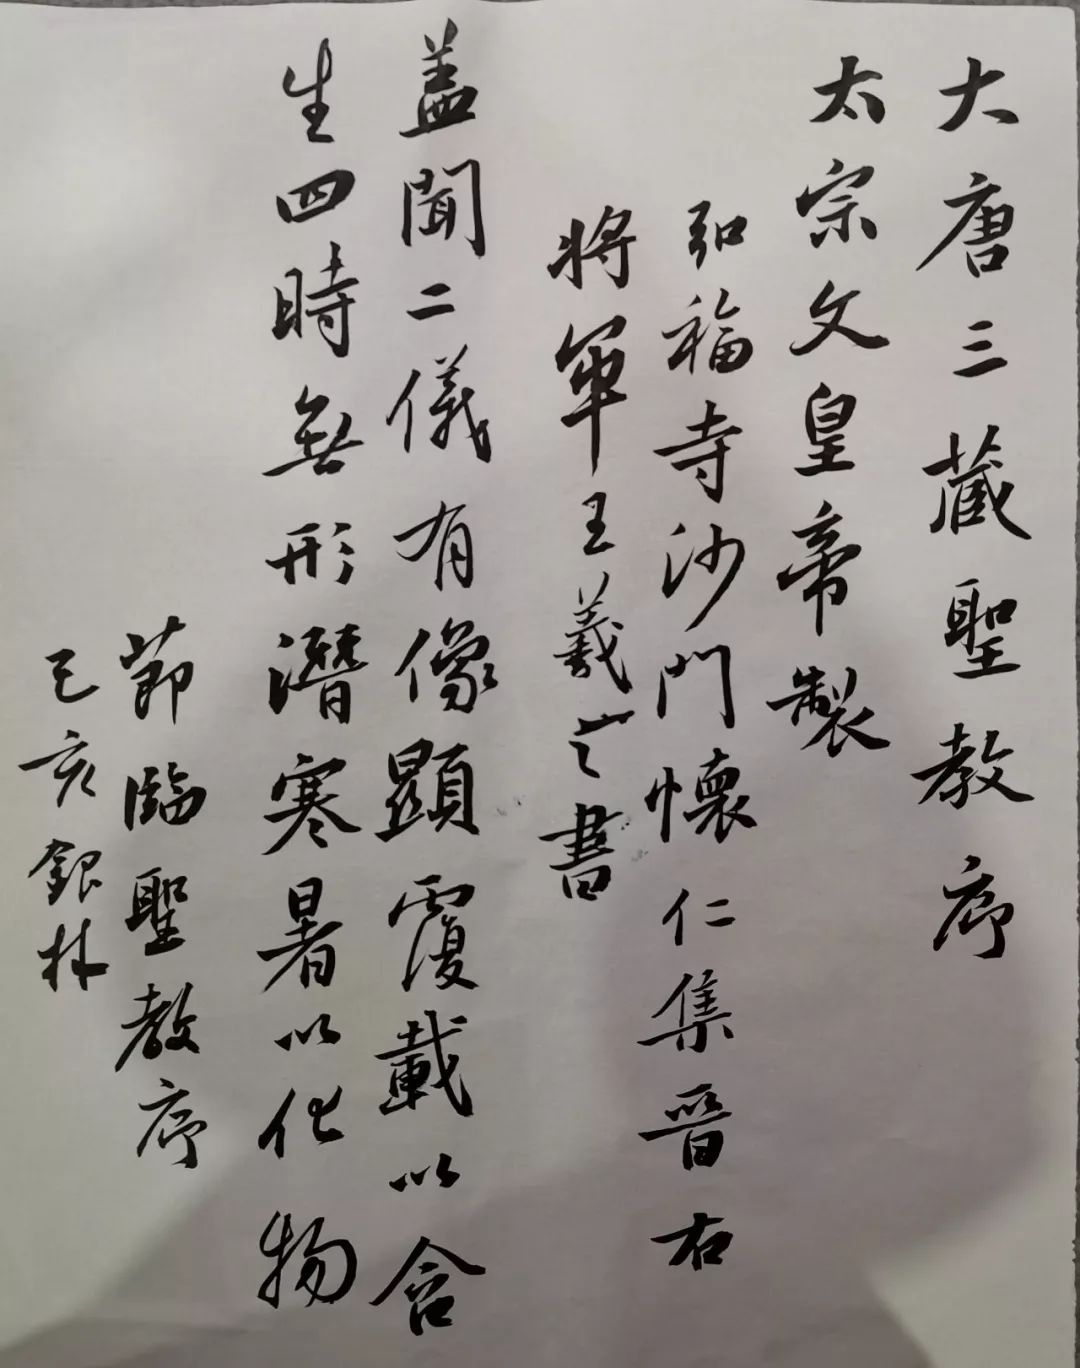 大唐三藏聖教序
太宗文皇帝製
弘福寺沙門懷仁集晉右
將軍王羲之書
盖聞二儀有像顯覆載以含
生四時無形潛寒暑以化物
節臨聖教序
己亥銀林